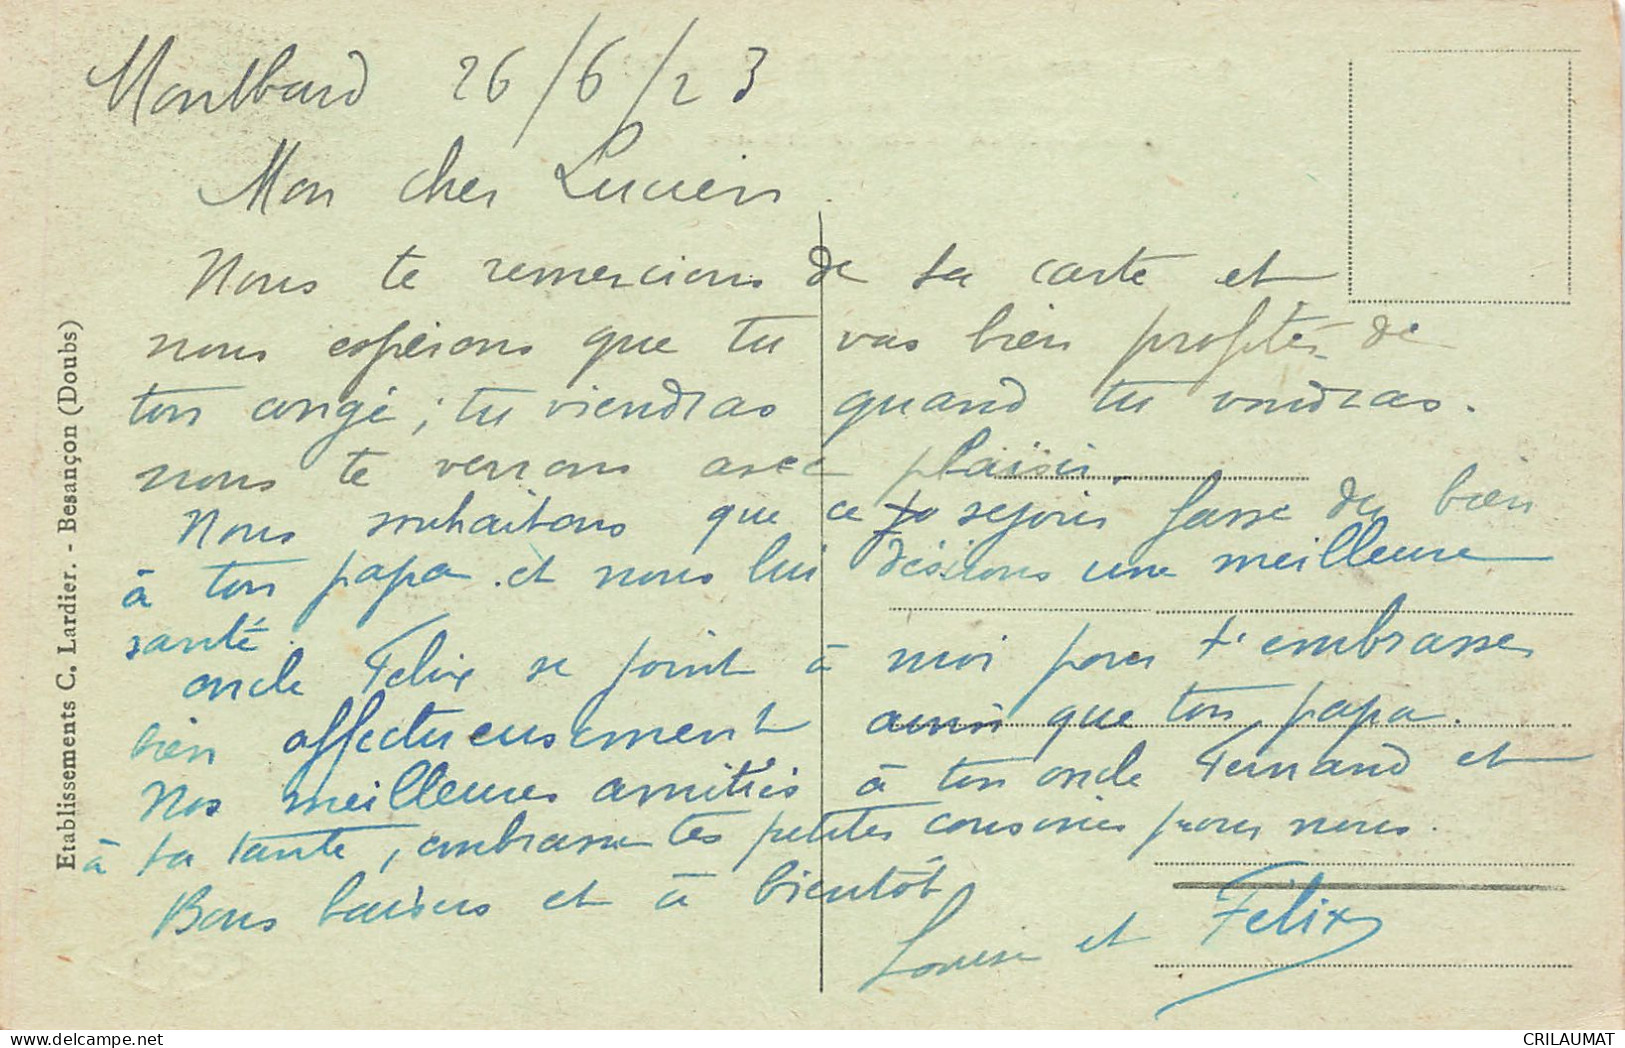 Montbard 26/6/23
Mon cher Lucien
Nous te remercions de ta carte et
nous espérons que tu vas bien profiter de
ton congé ; tu viendras quand tu voudras.
nous te verrons avec plaisir.
Nous souhaitons que ce séjour fasse du bien
à ton papa et nous lui désirons une meilleure
santé.
oncle Felix se joint à moi pour t'embrasser
bien affectueusement ainsi que ton papa.
Nos meilleures amitiés à ton oncle Fernand et
à ta tante, embrasse tes petites cousines pour nous.
Bons baisers et à bientôt
Louise et Felix
Etablissements C. Lardier. - Besançon (Doubs)
CRILAUMAT